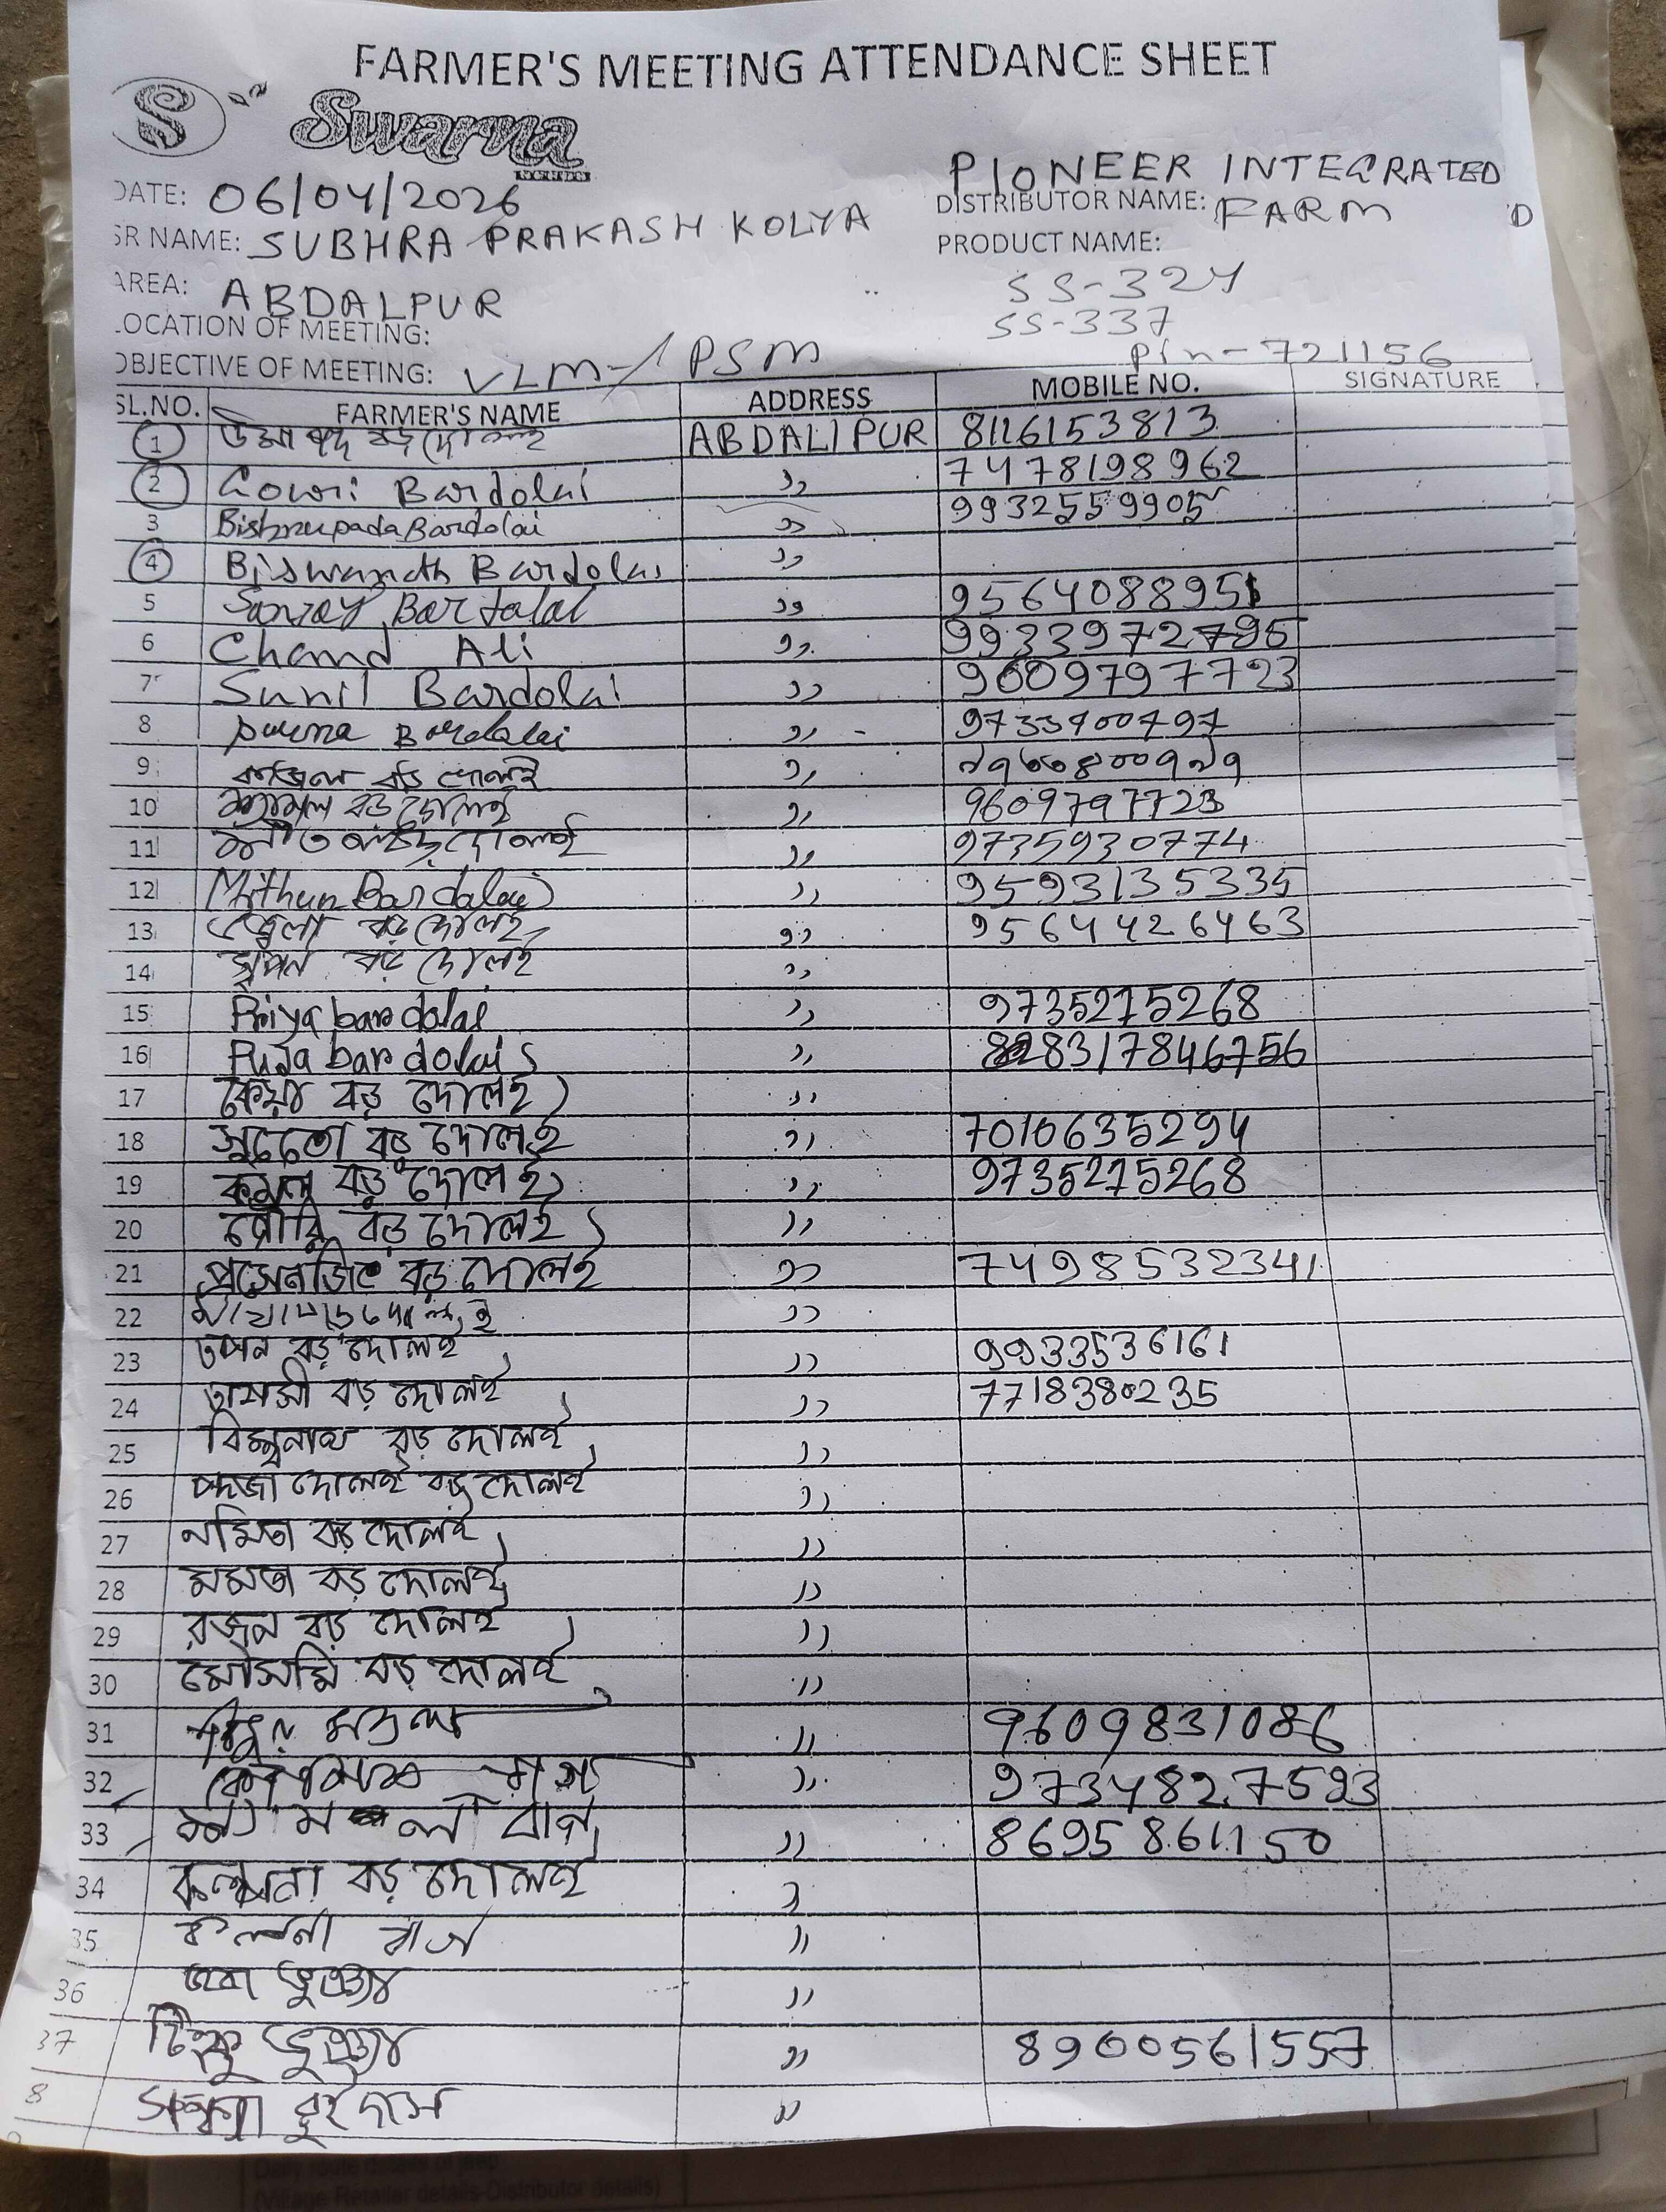 FARMER'S MEETING ATTENDANCE SHEET
S Swarna
PIONEER INTEGRATED
DATE: 06/04/2026
DISTRIBUTOR NAME: FARM
SR NAME: SUBHRA PRAKASH KOLYA
PRODUCT NAME:
AREA: ABDALPUR
SS-324
LOCATION OF MEETING:
SS-337
OBJECTIVE OF MEETING: VLM-/PSM
Pin-721156
SL.NO. FARMER'S NAME ADDRESS MOBILE NO. SIGNATURE
1 বড় দোলই ABDALIPUR 8116153813
2 Gowri Bardolai ,, 7478198962
3 Bishnupada Bardolai ,, 9932559905
4 Biswanath Bardolai ,,
5 Sanray Bardalai ,, 9564088951
6 Chand Ali ,, 9933972795
7 Sunil Bardolai ,, 9609797723
8 purna Bardalai ,, 9733900797
9 কাজল বড় দোলই ,,
10 শ্যামল বড় দোলই ,, 9609797723
11 ,, 9735930774
12 Mithun Bardalai ,, 9593135335
13 বড় দোলই ,, 9564426463
14 স্বপন বড় দোলই ,,
15 Priya bardalai ,, 9735275268
16 Puja bardolai ,, 8317846756
17 কেয়া বড় দোলই ,,
18 বড় দোলই ,, 7010635294
19 কমল বড় দোলই ,, 9735275268
20 গৌরি বড় দোলই ,,
21 প্রসেনজিৎ বড় দোলই ,, 7498532341
22 ,,
23 তপন বড় দোলই ,, 9933536161
24 তাপসী বড় দোলই ,, 7718380235
25 বিশ্বনাথ বড় দোলই ,,
26 দোলই বড় দোলই ,,
27 নমিতা বড় দোলই ,,
28 মমতা বড় দোলই ,,
29 রঞ্জন বড় দোলই ,,
30 মৌসমি বড় দোলই ,,
31 মন্ডল ,, 9609831086
32 ,, 9734827593
33 ,, 8695861150
34 কল্পনা বড় দোলই ,,
35 কল্পনা বাগ ,,
36 জবা ভুঞ্যা ,,
37 টিংকু ভুঞ্যা ,, 8900561557
8 রুইদাস ,,